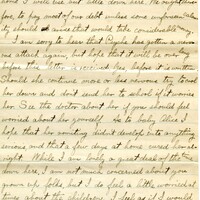 home I will use but little down here. We ought
for, to pay most of our debt unless some
dy should arise that would take considerable
I am sorry to hear that has gotten a
attack again, but hope that it will be over by
before this is received before it is written
Should she continue more or less nervous try to
her down and don't send her to school if it worries
her. See the doctor about her if you should feel
worried about her yourself. As to baby Alice I
hope that her vomiting didn't develop into anything
serious and that a few days at home cured her
right. While I am lonely a great deal of the time
down here, I am not much concerned about you
grown up folks, but I do feel a little worried at
time about the children. I feel as if I would